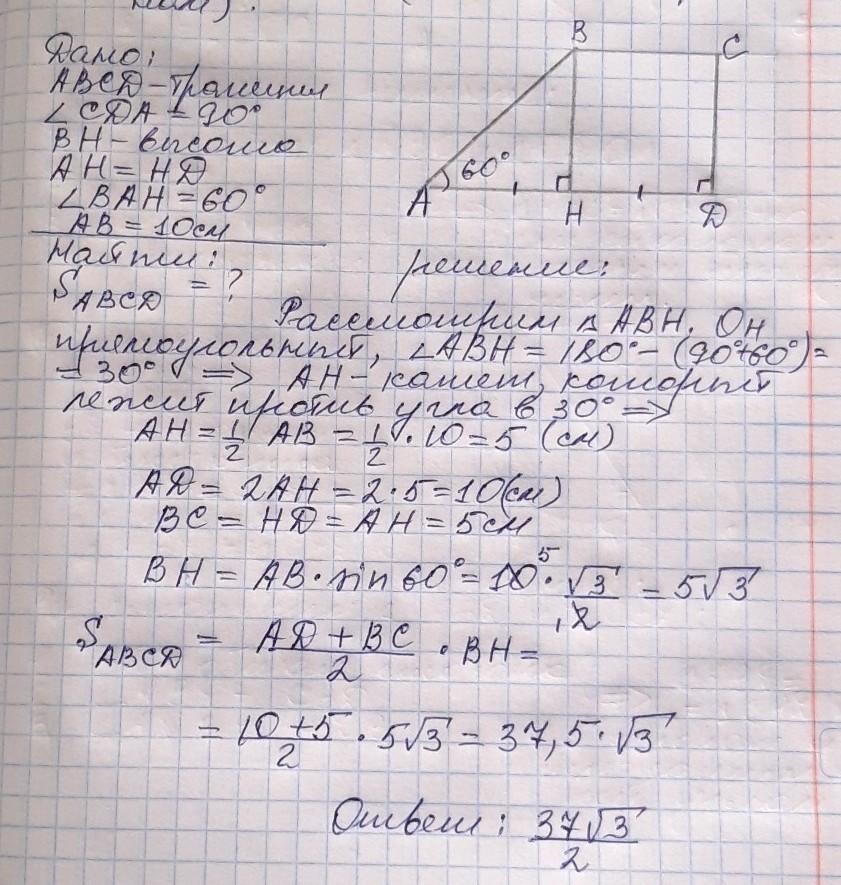 Дано:
ABCD - трапеция
∠CDA = 90°
BH - высота
AH = HD
∠BAH = 60°
AB = 10см
Найти:
S_ABCD = ?
B
C
60°
A
H
D
решение:
Рассмотрим △ABH. Он
прямоугольный, ∠ABH = 180° - (90°+60°) =
= 30° ⇒ AH - катет, который
лежит против угла в 30° ⇒
AH = 1/2 AB = 1/2 · 10 = 5 (см)
AD = 2AH = 2·5 = 10(см)
BC = HD = AH = 5см
BH = AB · sin 60° = 10 5 · √3/2 1 = 5√3
S_ABCD = (AD + BC)/2 · BH =
= (10 + 5)/2 · 5√3 = 37,5 · √3
Ответ: 37√3/2